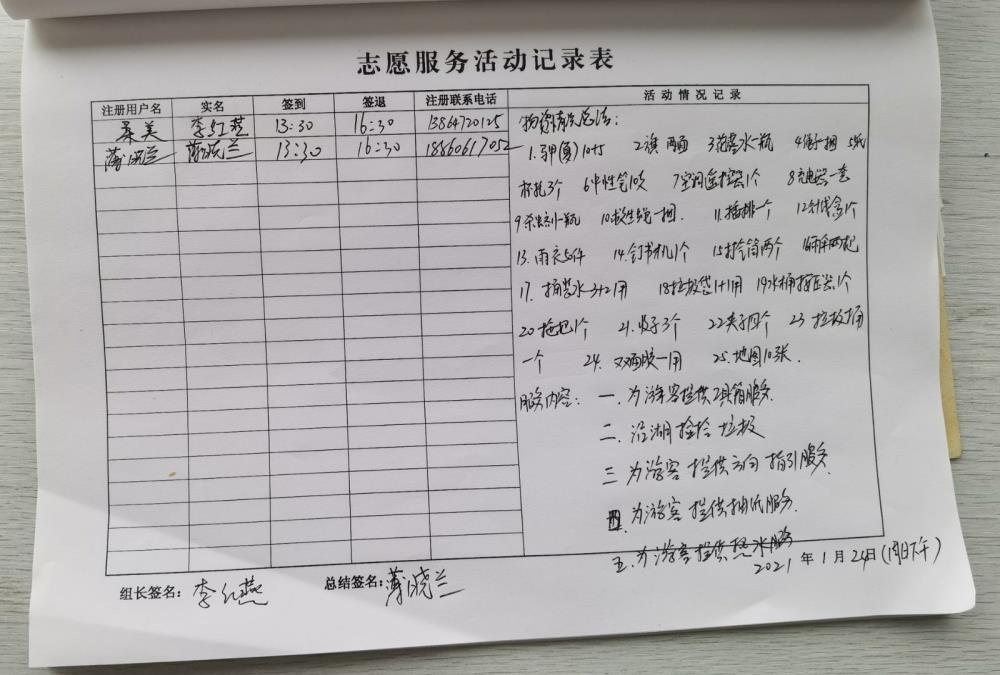 志愿服务活动记录表
注册用户名 实名 签到 签退 注册联系电话 活动情况记录
美 李红燕 13:30 16:30 13864720125
薄晓兰 薄晓兰 13:30 16:30 18860617052
物资情况总结：
1.马甲(夏)10+5 2旗 两面 3花露水一瓶 5纸
杯托3个 6中性笔10支 7空调遥控器1个 8 一套
9杀虫剂一瓶 10救生绳一捆. 11.插排一个 12针线盒1个
13.雨衣5件 14.钉书机1个 15打气筒两个 16雨伞两把
17. 桶装水3+2桶 18垃圾袋1+1 19水桶按压器1个
20拖把1个 21. 3个 22夹子四个 23 垃圾桶
一个 24. 双面胶一 25.地图10张.
服务内容： 一.为游客提供工具箱服务.
二.沿湖捡拾垃圾
三 为游客提供方向指引服务.
四.为游客提供抽纸服务.
五.为游客提供热水服务
2021年1月24日(周日下午)
组长签名：李红燕 总结签名：薄晓兰